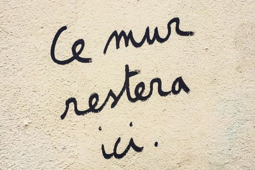 Ce mur
restera
ici.